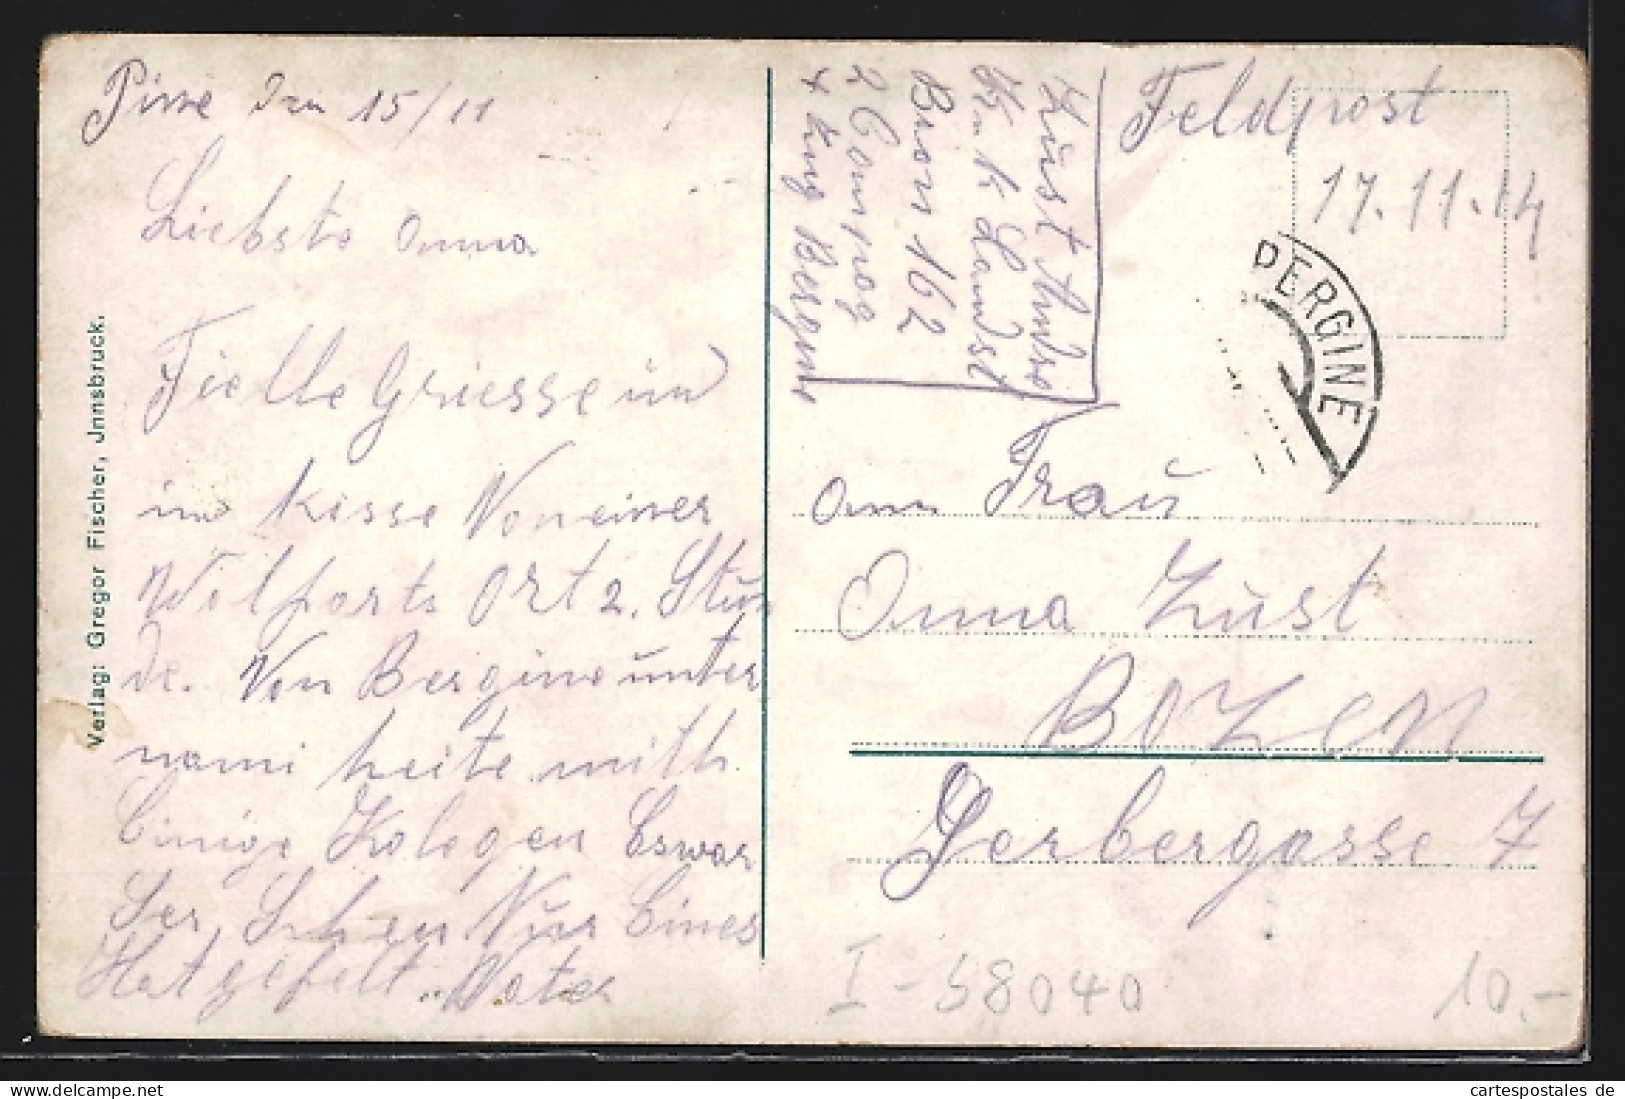 Pinne den 15/11
Liebste Anna
Fielle Griesse un
im kisse Von einer
Wolforts Ort 2. Stun
de. Von Bergine unter
nami heite mitt
Einige Kolegen Es war
Ser Schen Nur Eines
Hat gefelt Vater
Verlag: Gregor Fischer, Jnnsbruck.
Züst
K. k. Landst
Baon 162
2 Compag
Feldpost
17.11.14
PERGINE
Frau
Anna Züst
BOZEN
Gerbergasse 7
I-58040
10.-
My Clients / L3956
cartespostales de